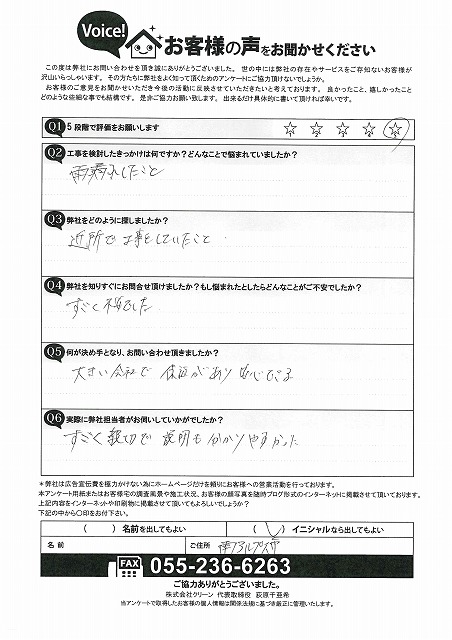 Voice!
お客様の声をお聞かせください
この度は弊社にお問い合わせを頂き誠にありがとうございました。世の中には弊社の存在やサービスをご存知ないお客様が
沢山いらっしゃいます。その方たちに弊社をよく知って頂くためのアンケートにご協力頂けないでしょうか。
お客様のご意見をお聞かせいただき今後の活動に反映させていただきたいと考えております。良かったこと、嬉しかったこと
どのような些細な事でも結構です。是非ご協力お願い致します。出来るだけ具体的に書いて頂ければ幸いです。
Q1 5段階で評価をお願いします ☆ ☆ ☆ ☆ ☆
Q2 工事を検討したきっかけは何ですか?どんなことで悩まれていましたか?
雨漏れしたこと
Q3 弊社をどのように探しましたか?
近所で工事をしていたこと
Q4 弊社を知りすぐにお問合せ頂けましたか?もし悩まれたとしたらどんなことがご不安でしたか?
すごく不安でした
Q5 何が決め手となり、お問い合わせ頂きましたか?
大きい会社で 保証があり 安心できる
Q6 実際に弊社担当者がお伺いしていかがでしたか?
すごく親切で 説明も 分かりやすかった
*弊社は広告宣伝費を極力かけない為にホームページだけを頼りにお客様への営業活動を行っております。
本アンケート用紙またはお客様宅の調査風景や施工状況、お客様の顔写真を随時ブログ形式のインターネットに掲載させて頂いております。
上記内容をインターネットや印刷物に掲載させて頂いてもよろしいでしょうか?
下記の中から〇印をお付下さい。
( ) 名前を出してもよい ( ) イニシャルなら出してもよい
名前 ご住所 南アルプス市
FAX 055-236-6263
ご協力ありがとうございました。
株式会社クリーン 代表取締役 荻原千亜希
当アンケートで取得したお客様の個人情報は関係法規に基づき厳正に管理いたします。